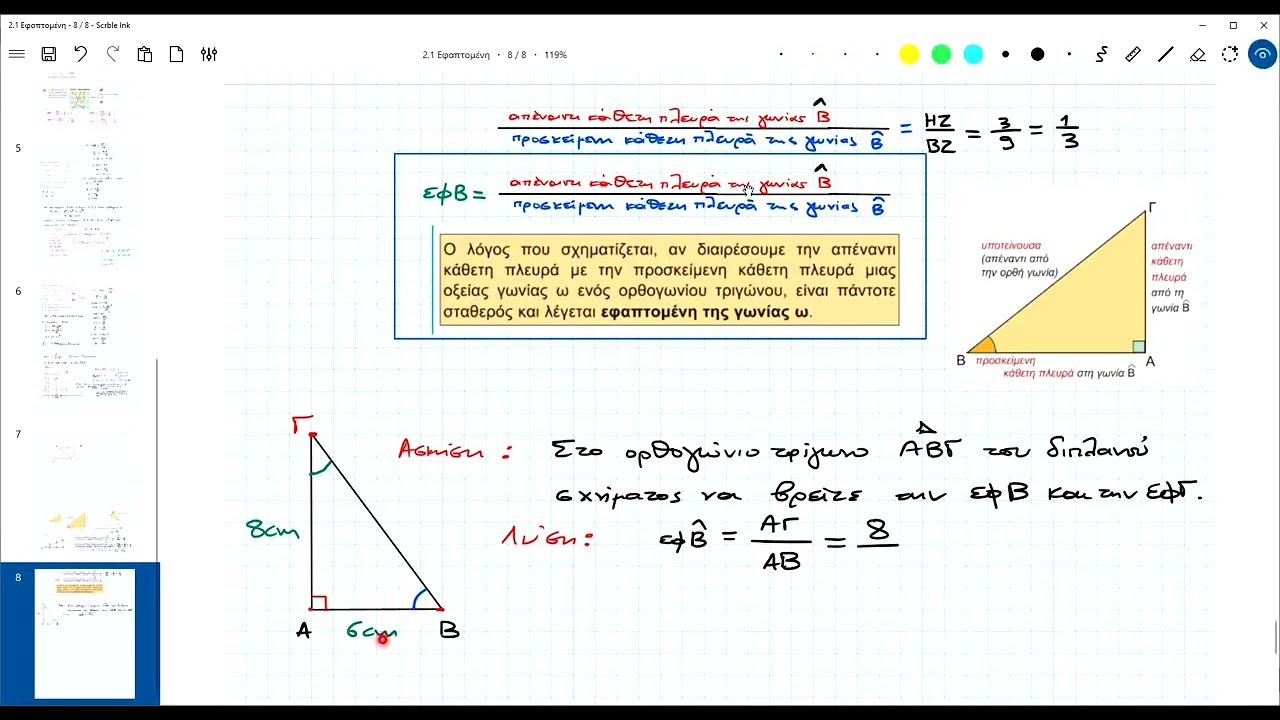 2.1 Εφαπτομένη - 8 / 8 - Scrble Ink
2.1 Εφαπτομένη • 8 / 8 • 119%
απέναντι κάθετη πλευρά της γωνίας B̂
προσκείμενη κάθετη πλευρά της γωνίας B̂
= ΗΖ / ΒΖ = 3 / 9 = 1 / 3
εφΒ =
απέναντι κάθετη πλευρά της γωνίας B̂
προσκείμενη κάθετη πλευρά της γωνίας B̂
Ο λόγος που σχηματίζεται, αν διαιρέσουμε την απέναντι
κάθετη πλευρά με την προσκείμενη κάθετη πλευρά μιας
οξείας γωνίας ω ενός ορθογωνίου τριγώνου, είναι πάντοτε
σταθερός και λέγεται εφαπτομένη της γωνίας ω.
Γ
υποτείνουσα
(απέναντι από
την ορθή γωνία)
απέναντι
κάθετη
πλευρά
από τη
γωνία B̂
Β
Α
προσκείμενη
κάθετη πλευρά στη γωνία B̂
Γ
8cm
Α
6cm
Β
Άσκηση :
Στο ορθογώνιο τρίγωνο ΑΒΓ του διπλανού
σχήματος να βρείτε την εφΒ και την εφΓ.
Λύση:
εφB̂ = ΑΓ / ΑΒ = 8
5
6
7
8